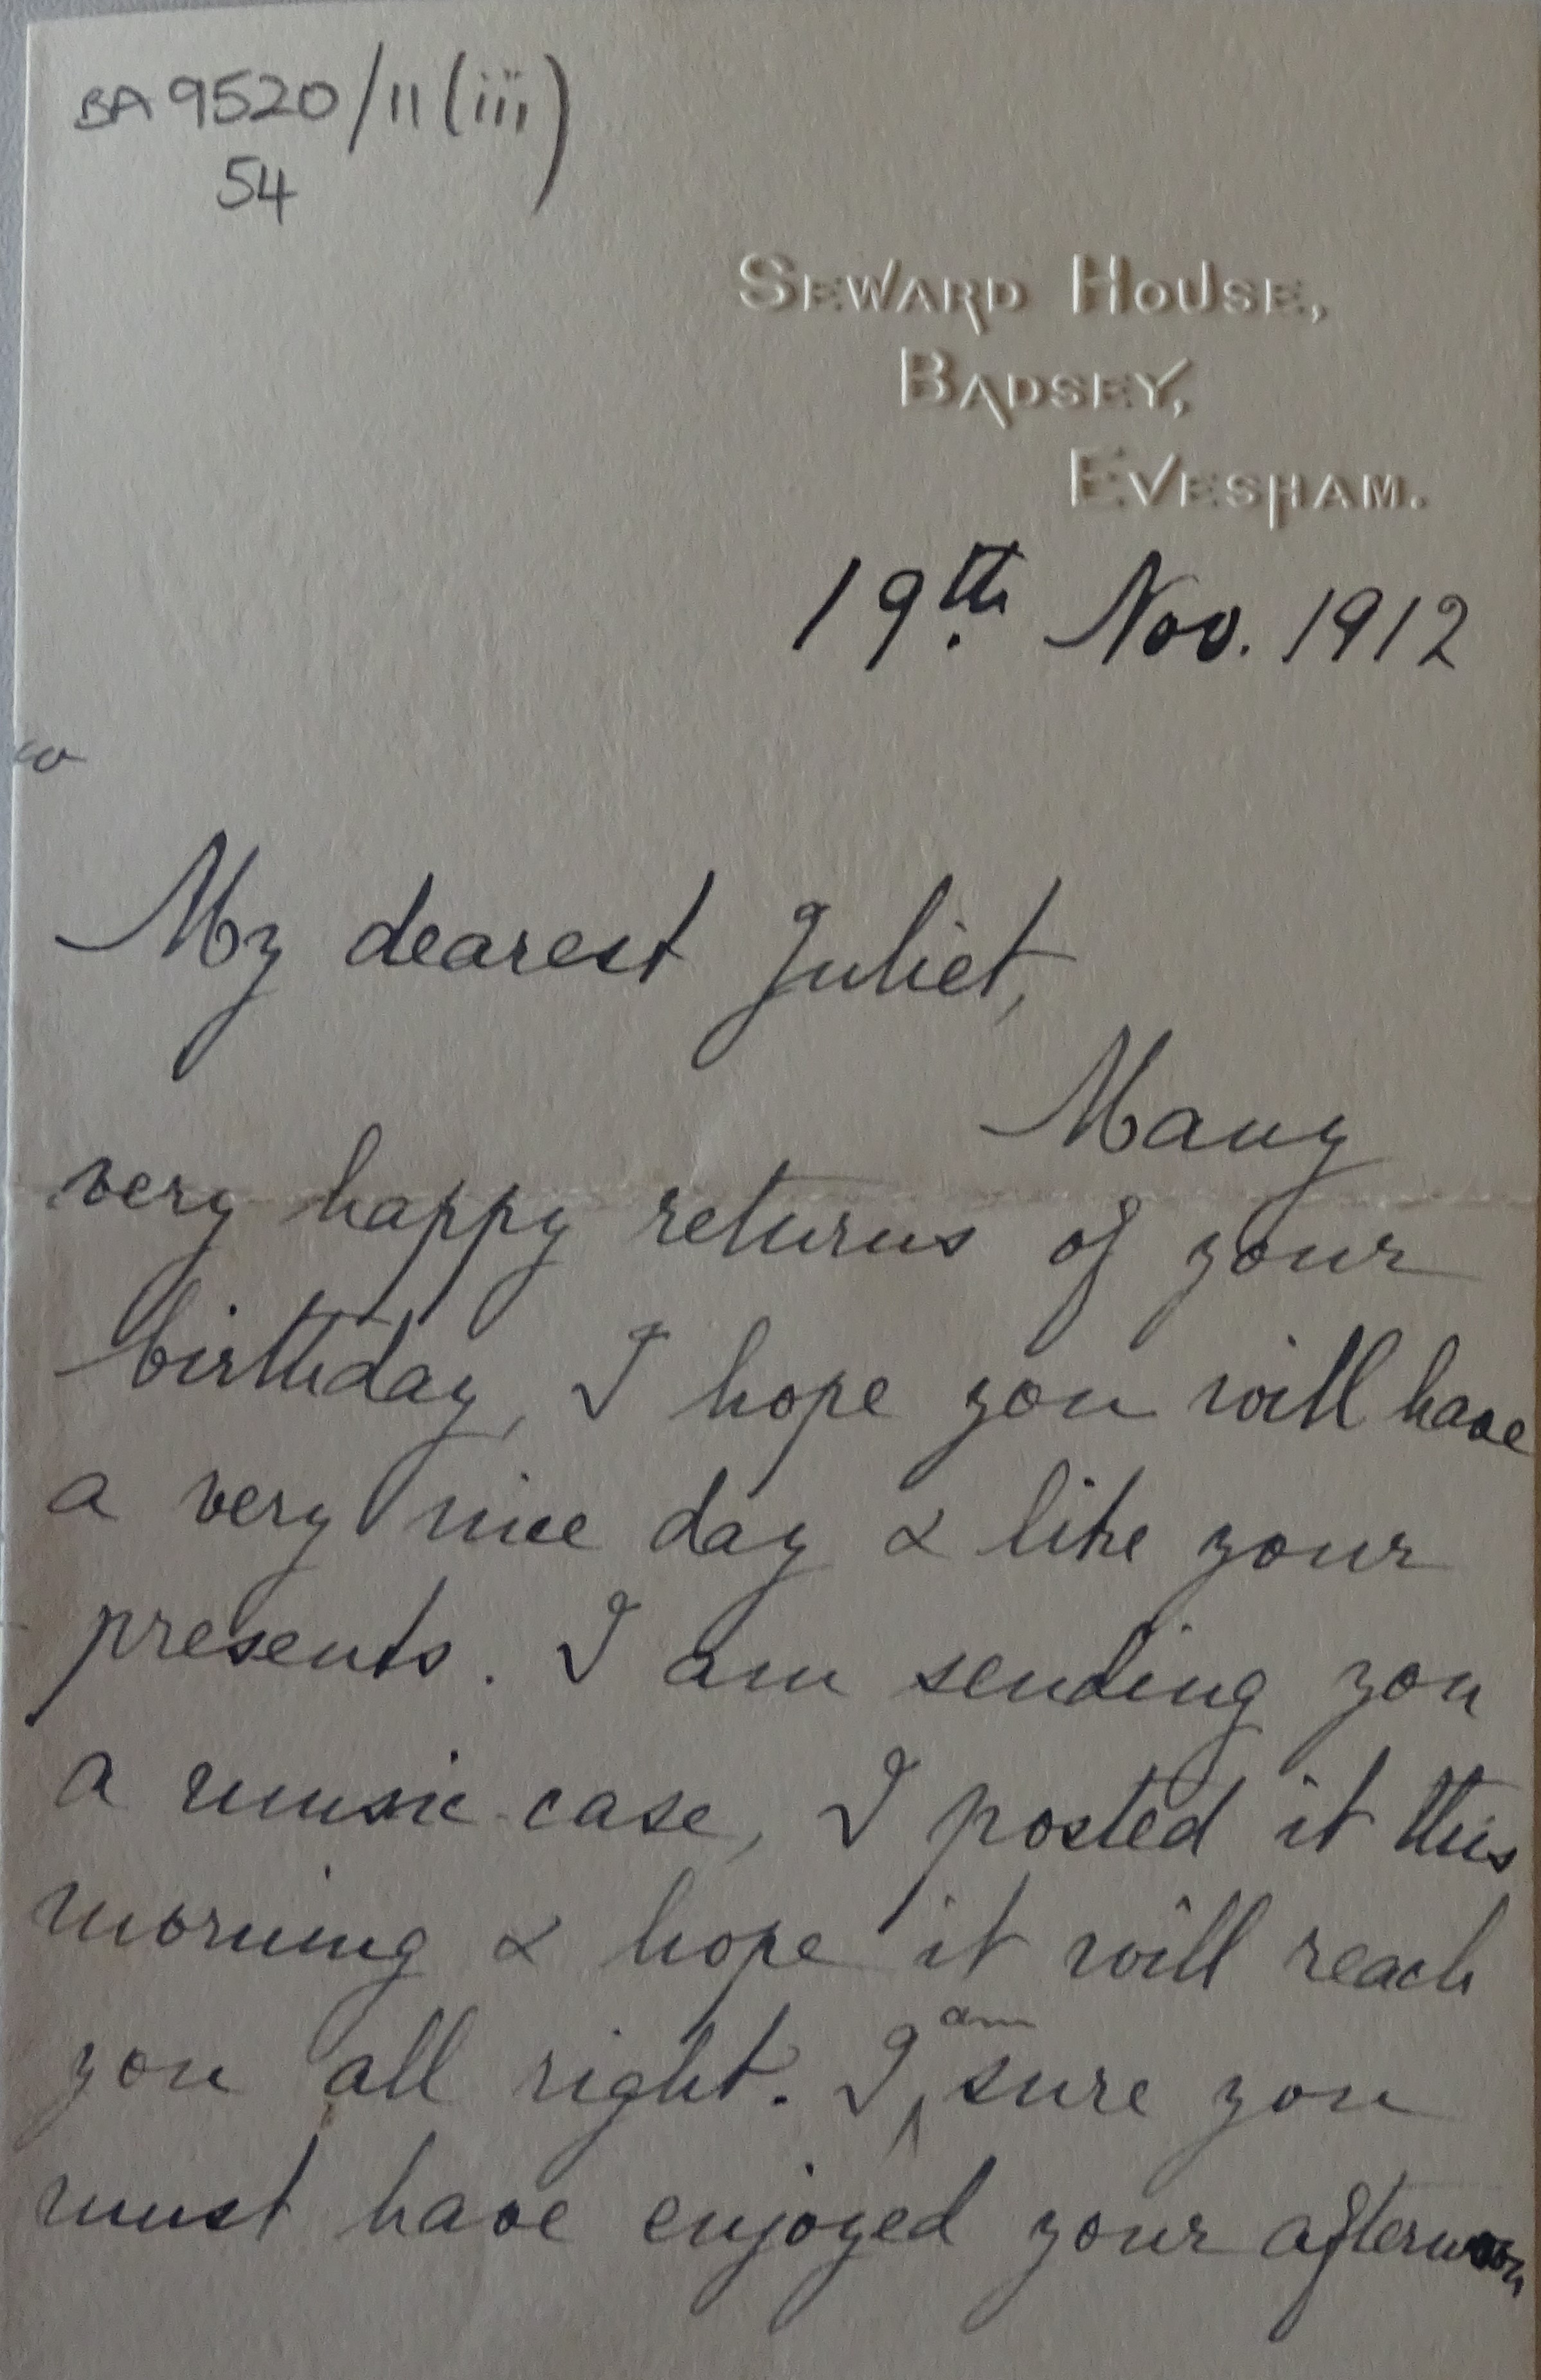 BA 9520/11 (iii)
54
SEWARD HOUSE,
BADSEY,
EVESHAM.
19th Nov. 1912
My dearest Juliet,
Many
very happy returns of your
birthday, I hope you will have
a very nice day & like your
presents. I am sending you
a music case, I posted it this
morning & hope it will reach
you all right. I am sure you
must have enjoyed your afternoon